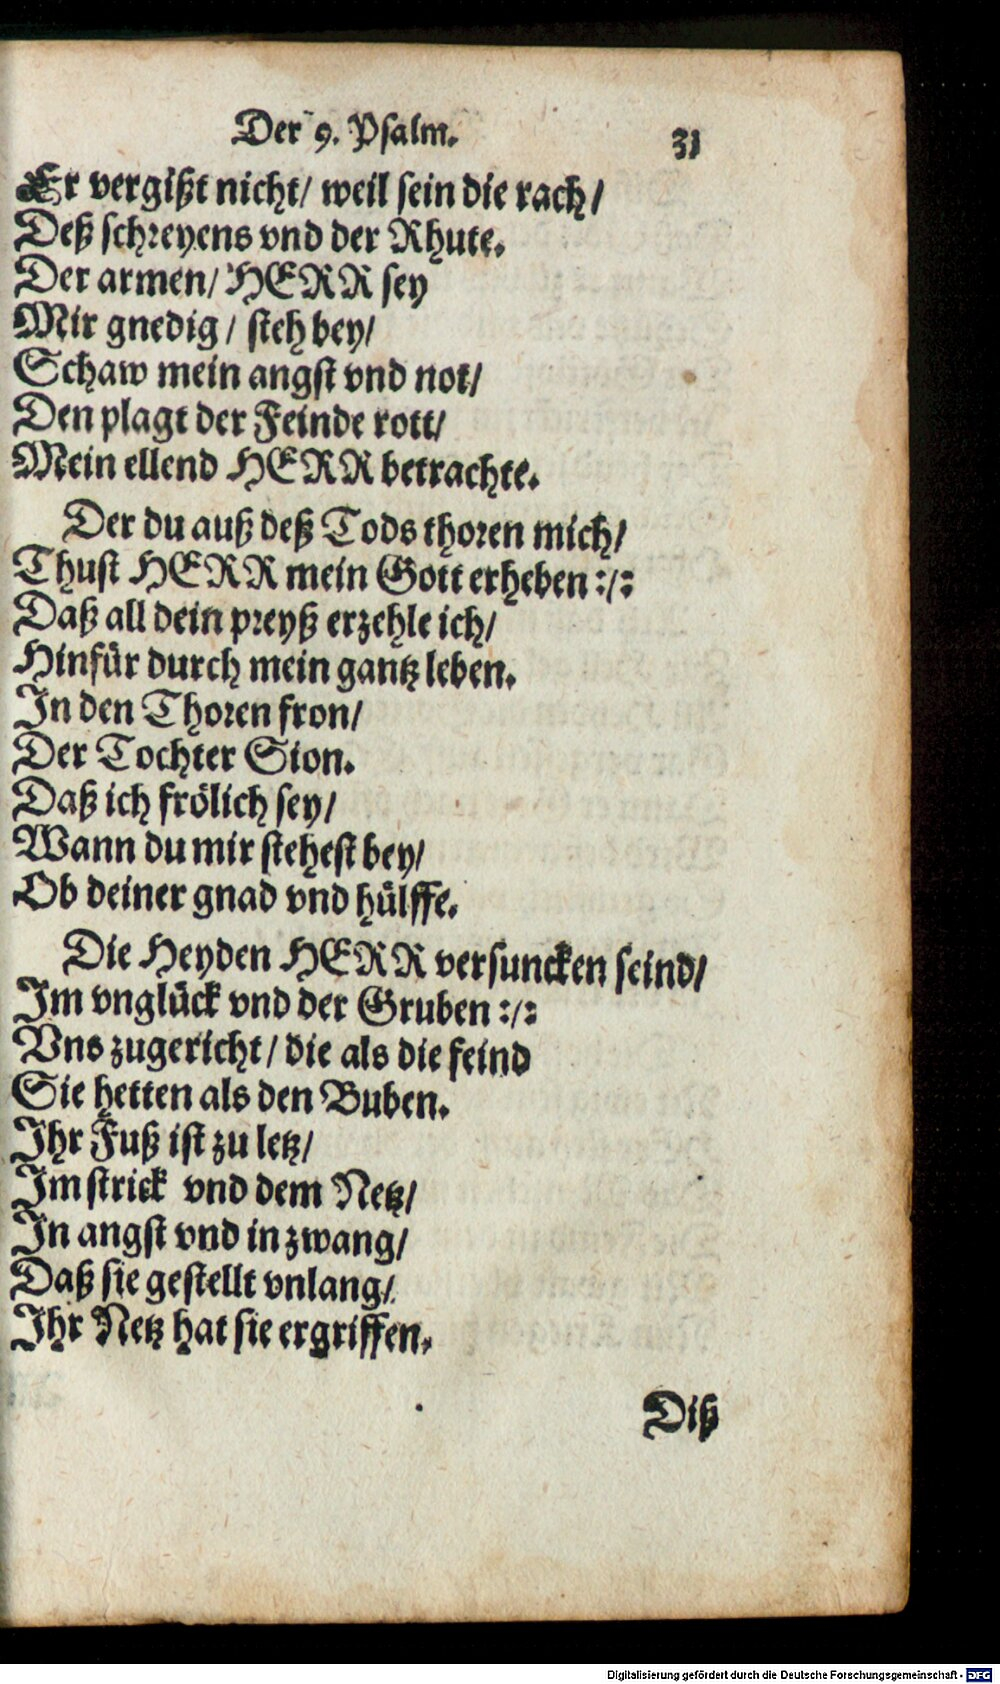 Der 9. Psalm. 31
Er vergißt nicht/ weil sein die rach/
Deß schreyens vnd der Rhute.
Der armen/ HERR sey
Mir gnedig/ steh bey/
Schaw mein angst vnd not/
Den plagt der Feinde rott/
Mein ellend HERR betrachte.
Der du auß deß Tods thoren mich/
Thust HERR mein Gott erheben :/:
Daß all dein preyß erzehle ich/
Hinfür durch mein gantz leben.
In den Thoren fron/
Der Tochter Sion.
Daß ich frölich sey/
Wann du mir stehest bey/
Ob deiner gnad vnd hülffe.
Die Heyden HERR versuncken seind/
Im vnglück vnd der Gruben :/:
Vns zugericht/ die als die feind
Sie hetten als den Buben.
Ihr Fuß ist zu letz/
Im strick vnd dem Netz/
In angst vnd in zwang/
Daß sie gestellt vnlang/
Ihr Netz hat sie ergriffen.
Diß
Digitalisierung gefördert durch die Deutsche Forschungsgemeinschaft - DFG